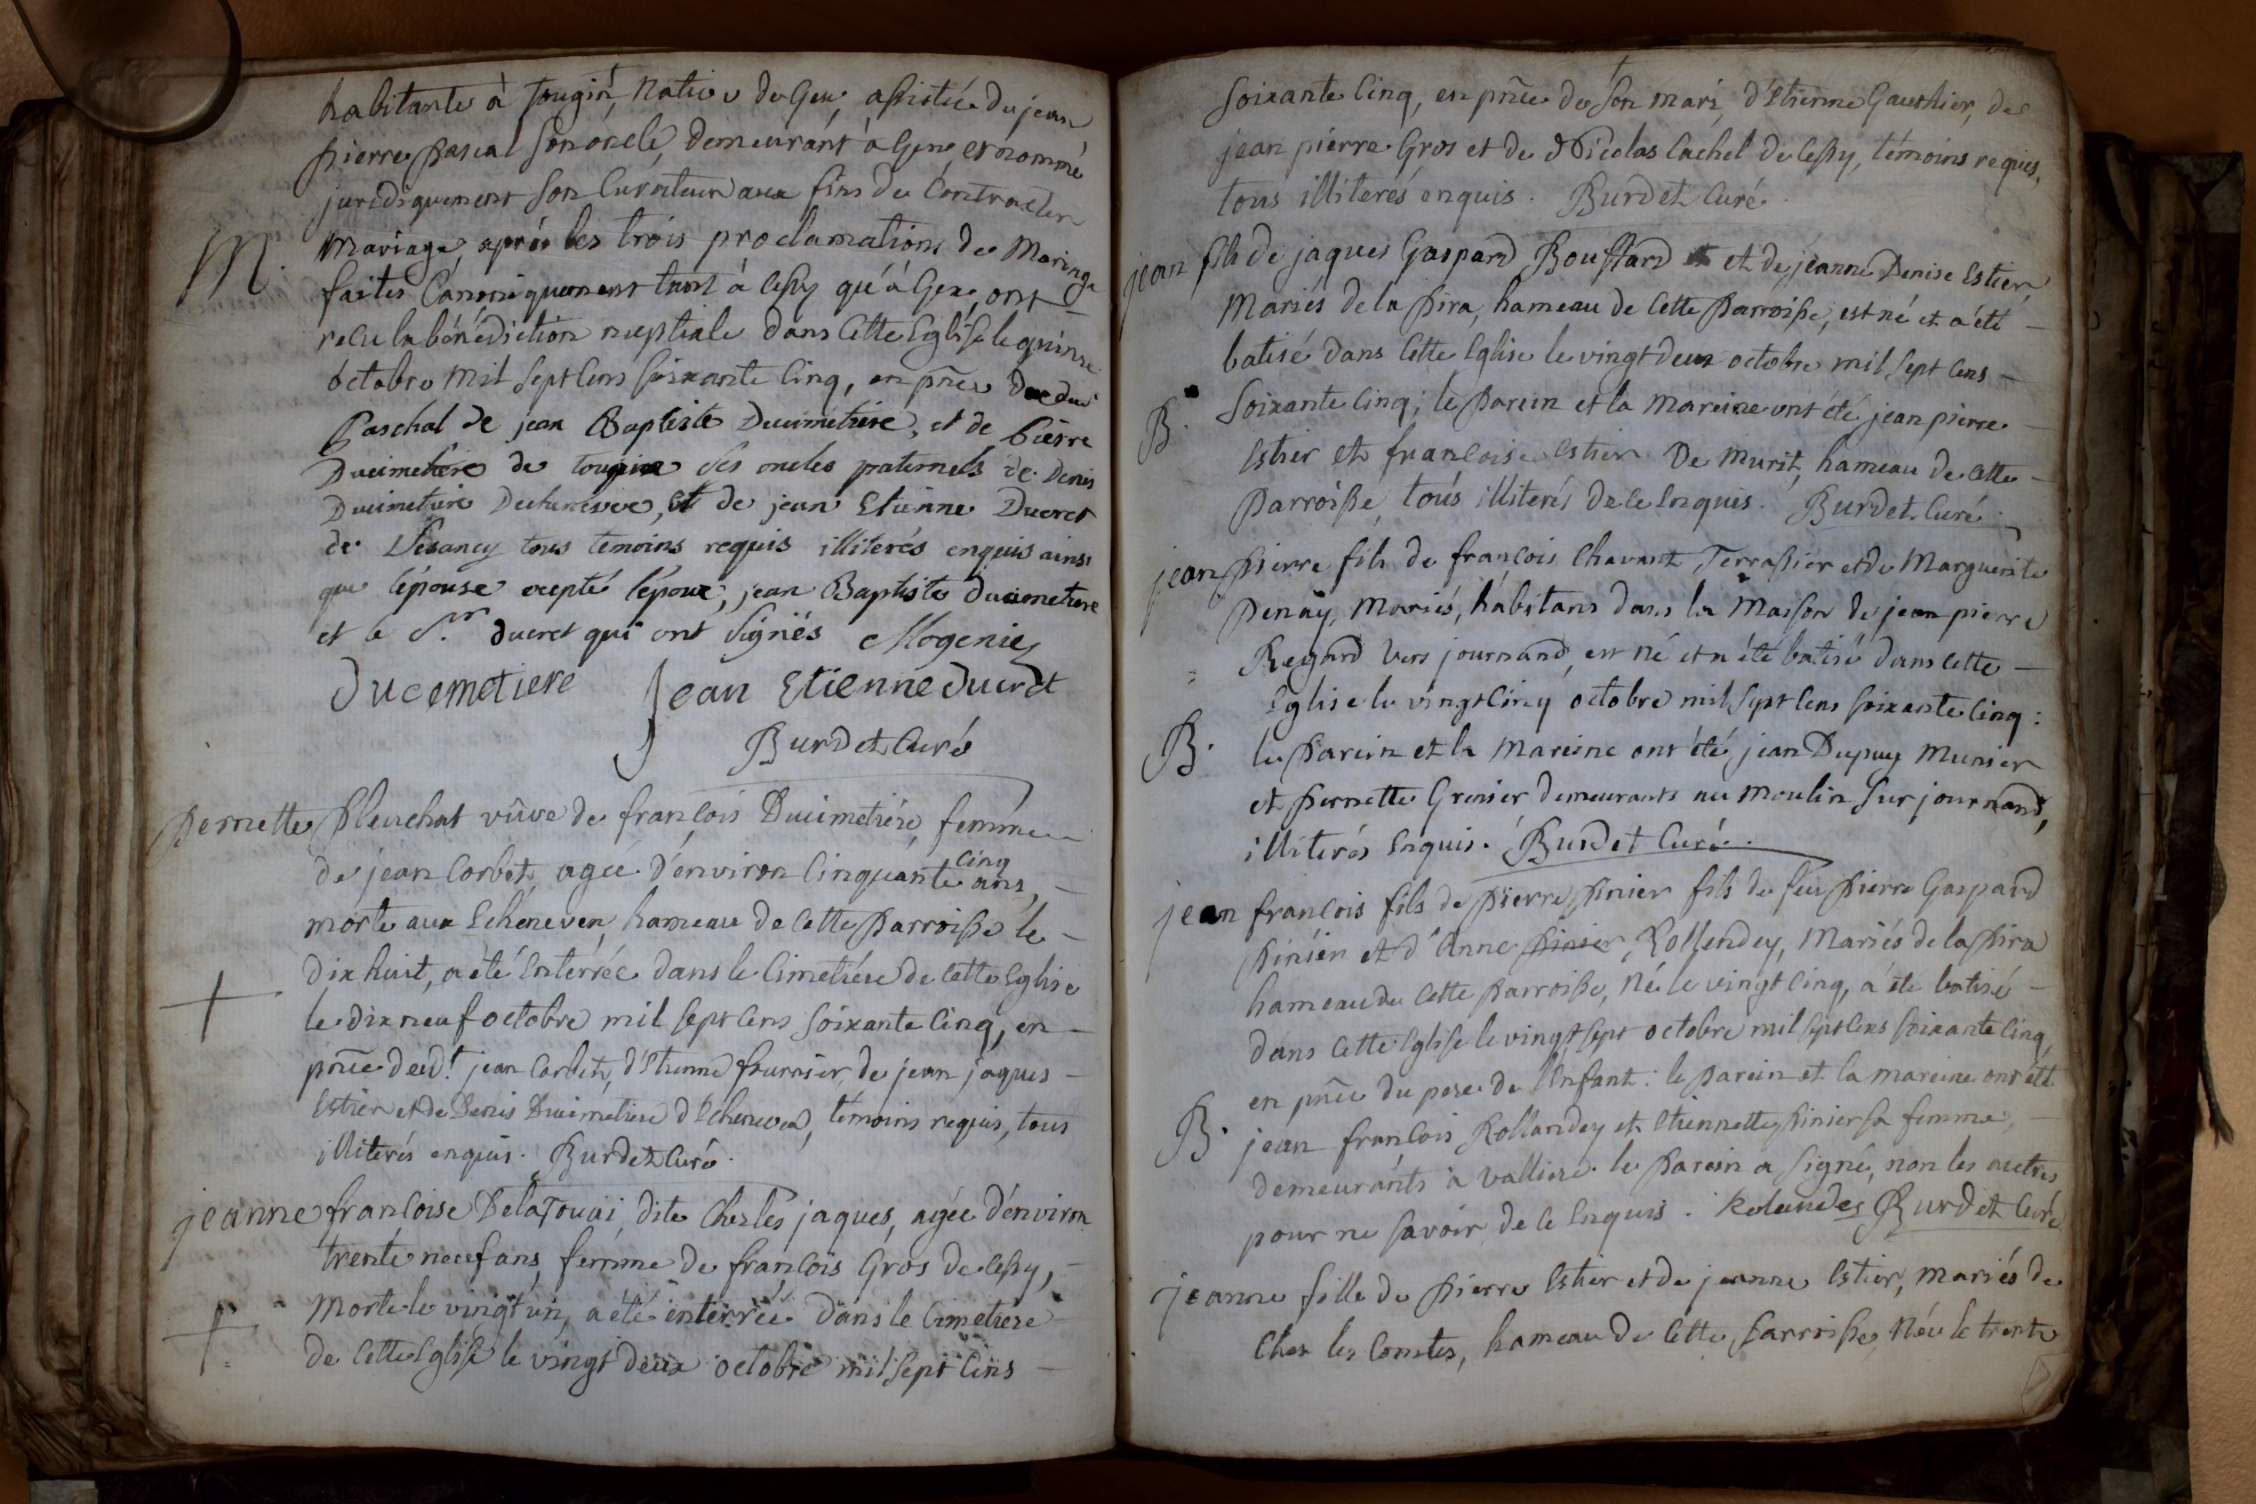 habitante à Tougin, Native de Gex, assistée de jean
pierre Pascal son oncle, demeurant à Gex, et nommé
juridiquement son Curateur aux fins de Contracter
M. Mariage, aprés les trois proclamations de Mariage
faites Canoniquement tant à Cessy qu'à Gex, ont
reçu la bénédiction nuptiale dans Cette Eglise le quinze
octobre mil sept Cens soixante Cinq, en pñce du
Paschal de jean Baptiste Ducimetiére, et de pierre
Ducimetiére de tougin ses oncles paternels de Denis
Ducimetiére Dechenevex, et de jean Etienne Ducret
de Vesancy tous temoins requis illiterés enquis ainsi
que lépouse excepté lépoux, jean Baptiste ducimetiere
et le Sr. ducret qui ont signés Mogenie
ducemetiere jean Etienne ducret
Burdet Curé
Pernette Pleuchat vûve de françois Ducimetiére, femme
de jean Corbet, agée d'environ Cinquante Cinq ans, –
morte aux Echenevex, hameau de Cette Parroisse le –
dix huit, a été Enterrée dans le Cimetiére de Cette Eglise
+ le dix neuf octobre mil sept Cens soixante Cinq, en –
pñce dud.t jean Corbet, d'Etienne fournier, de jean jaques –
Estier et de Denis Ducimetiere d'Echenevex, témoins requis, tous
illiterés enquis. Burdet Curé.
jeanne françoise Delajouai dite Chez les jaques, agée d'environ
trente neuf ans, femme de françois Gros de Cessy, –
+ Morte le vingt un, a été enterrée dans le Cimetiere
de Cette Eglise le vingt deux octobre mil sept Cens –
soixante Cinq, en pñce de son mari, d'Etienne Gauthier, de
jean pierre Gros et de Nicolas Lachel de Cessy, témoins requis,
tous illiterés enquis. Burdet Curé.
jean fils de jaques Gaspard Bouffard et de jeanne Denise Estier,
Mariés de la Pira, hameau de Cette Parroisse, est né et a été –
batisé dans Cette Eglise le vingt deux octobre mil sept Cens –
B. soixante Cinq; le Parein et la Mareine ont été jean pierre –
Estier et françoise Estier De Murit, hameau de Cette –
Parroisse, tous illiterés de ce Enquis. Burdet Curé.
jean Pierre fils de françois Chavant Terrassier et de Marguerite
Penay, Mariés, habitans dans la Maison de jean pierre
Regard vers journand, est né et a été batisé dans Cette –
Eglise le vingt Cinq octobre mil sept Cens soixante Cinq:
B. le Parein et la Mareine ont été jean Dupuy Munier
et Pernette Grenier demeurants au Moulin sur journand,
illiterés Enquis. Burdet Curé.
jean françois fils de Pierre Pinier fils de feu Pierre Gaspard
Pinier et d'Anne Pinier, Rollendey, Mariés de la Pira
hameau de Cette Parroisse, Né le vingt Cinq, a été batisé –
dans Cette Eglise le vingt sept octobre mil sept Cens soixante Cinq,
en pñce du pere de l'Enfant: le Parein et la mareine ont été
B. jean françois Rollandey et Etiennette Pinier sa femme, –
demeurants à valliere. le Parein a signé, non les autres
pour ne savoir, de ce Enquis. Rolandes Burdet Curé
jeanne fille de Pierre Estier et de jeanne Estier, Mariés de
Chez les Comtes, hameau de Cette Parroisse, Née le trente